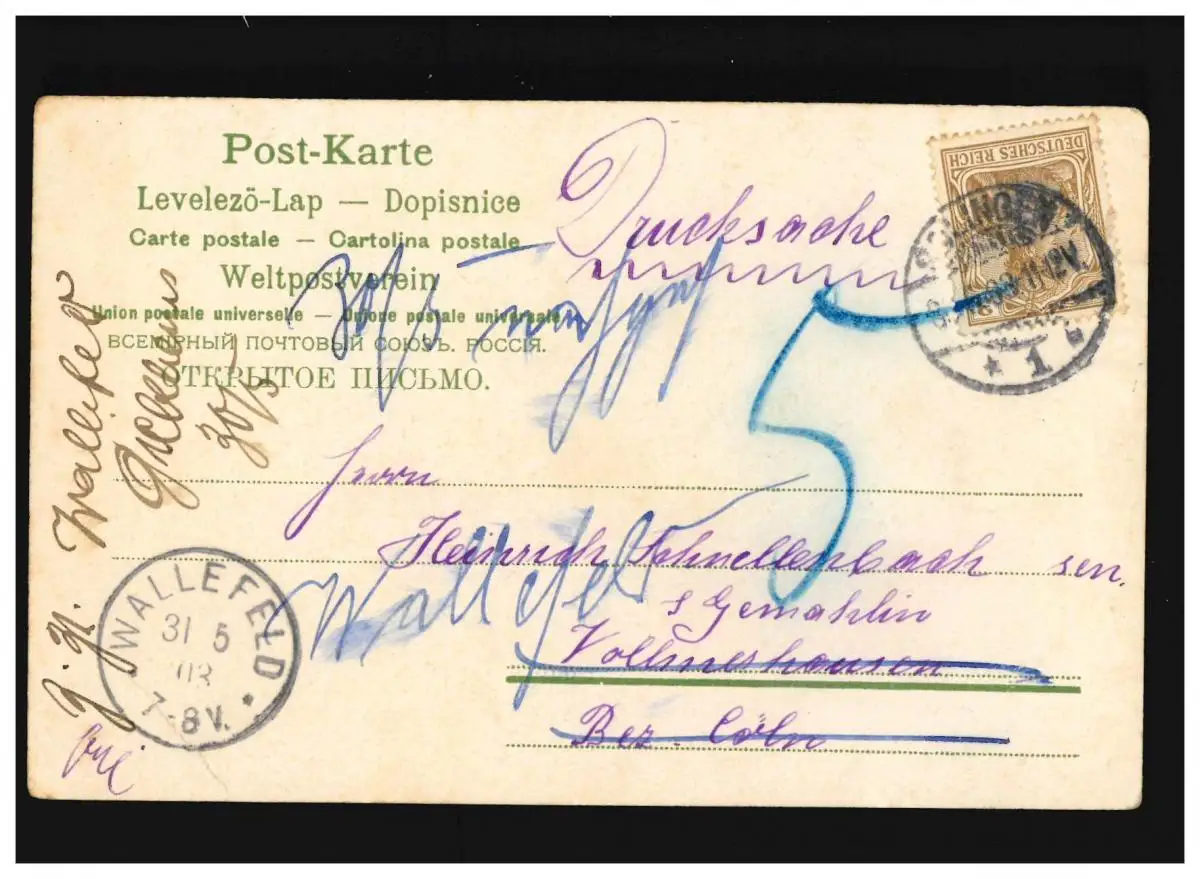 Post-Karte
Levelező-Lap — Dopisnice
Carte postale — Cartolina postale
Weltpostverein
Union postale universelle — Unione postale universale
ВСЕМІРНЫЙ ПОЧТОВЫЙ СОЮЗЪ. РОССІЯ.
ОТКРЫТОЕ ПИСЬМО.
Drucksache
DEUTSCHES REICH
1
5
30/5
Herrn
Heinrich Schnellenbach sen.
s Gemahlin
Vollmershausen
Bez. Cöln
Wallefeld
WALLEFELD
31 5
03
7-8V.
Wallefeld
30/5